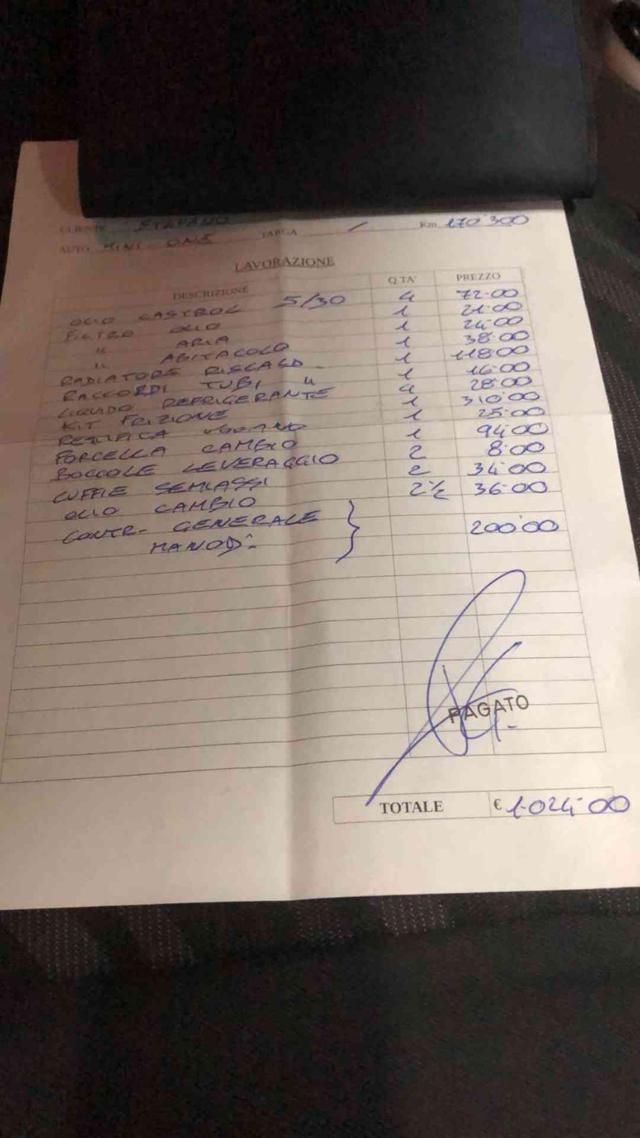 CLIENTE STEFANO TARGA / Km 170'300
AUTO MINI-ONE
LAVORAZIONE
DESCRIZIONE Q.TA' PREZZO
OLIO CASTROL 5/30 4 72.00
FILTRO OLIO 1 21.00
" ARIA 1 24.00
" ABITACOLO 1 38.00
RADIATORE RISCALD. 1 118.00
RACCORDI TUBI " 1 16.00
LIQUIDO REFRIGERANTE 4 28.00
KIT FRIZIONE 1 310.00
RETTIFICA 1 25.00
FORCELLA CAMBIO 1 94.00
BOCCOLE LEVERAGGIO 2 8.00
CUFFIE SEMIASSI 2 34.00
OLIO CAMBIO 2½ 36.00
CONTR. GENERALE
MANOD. 200.00
PAGATO
TOTALE € 1.024.00